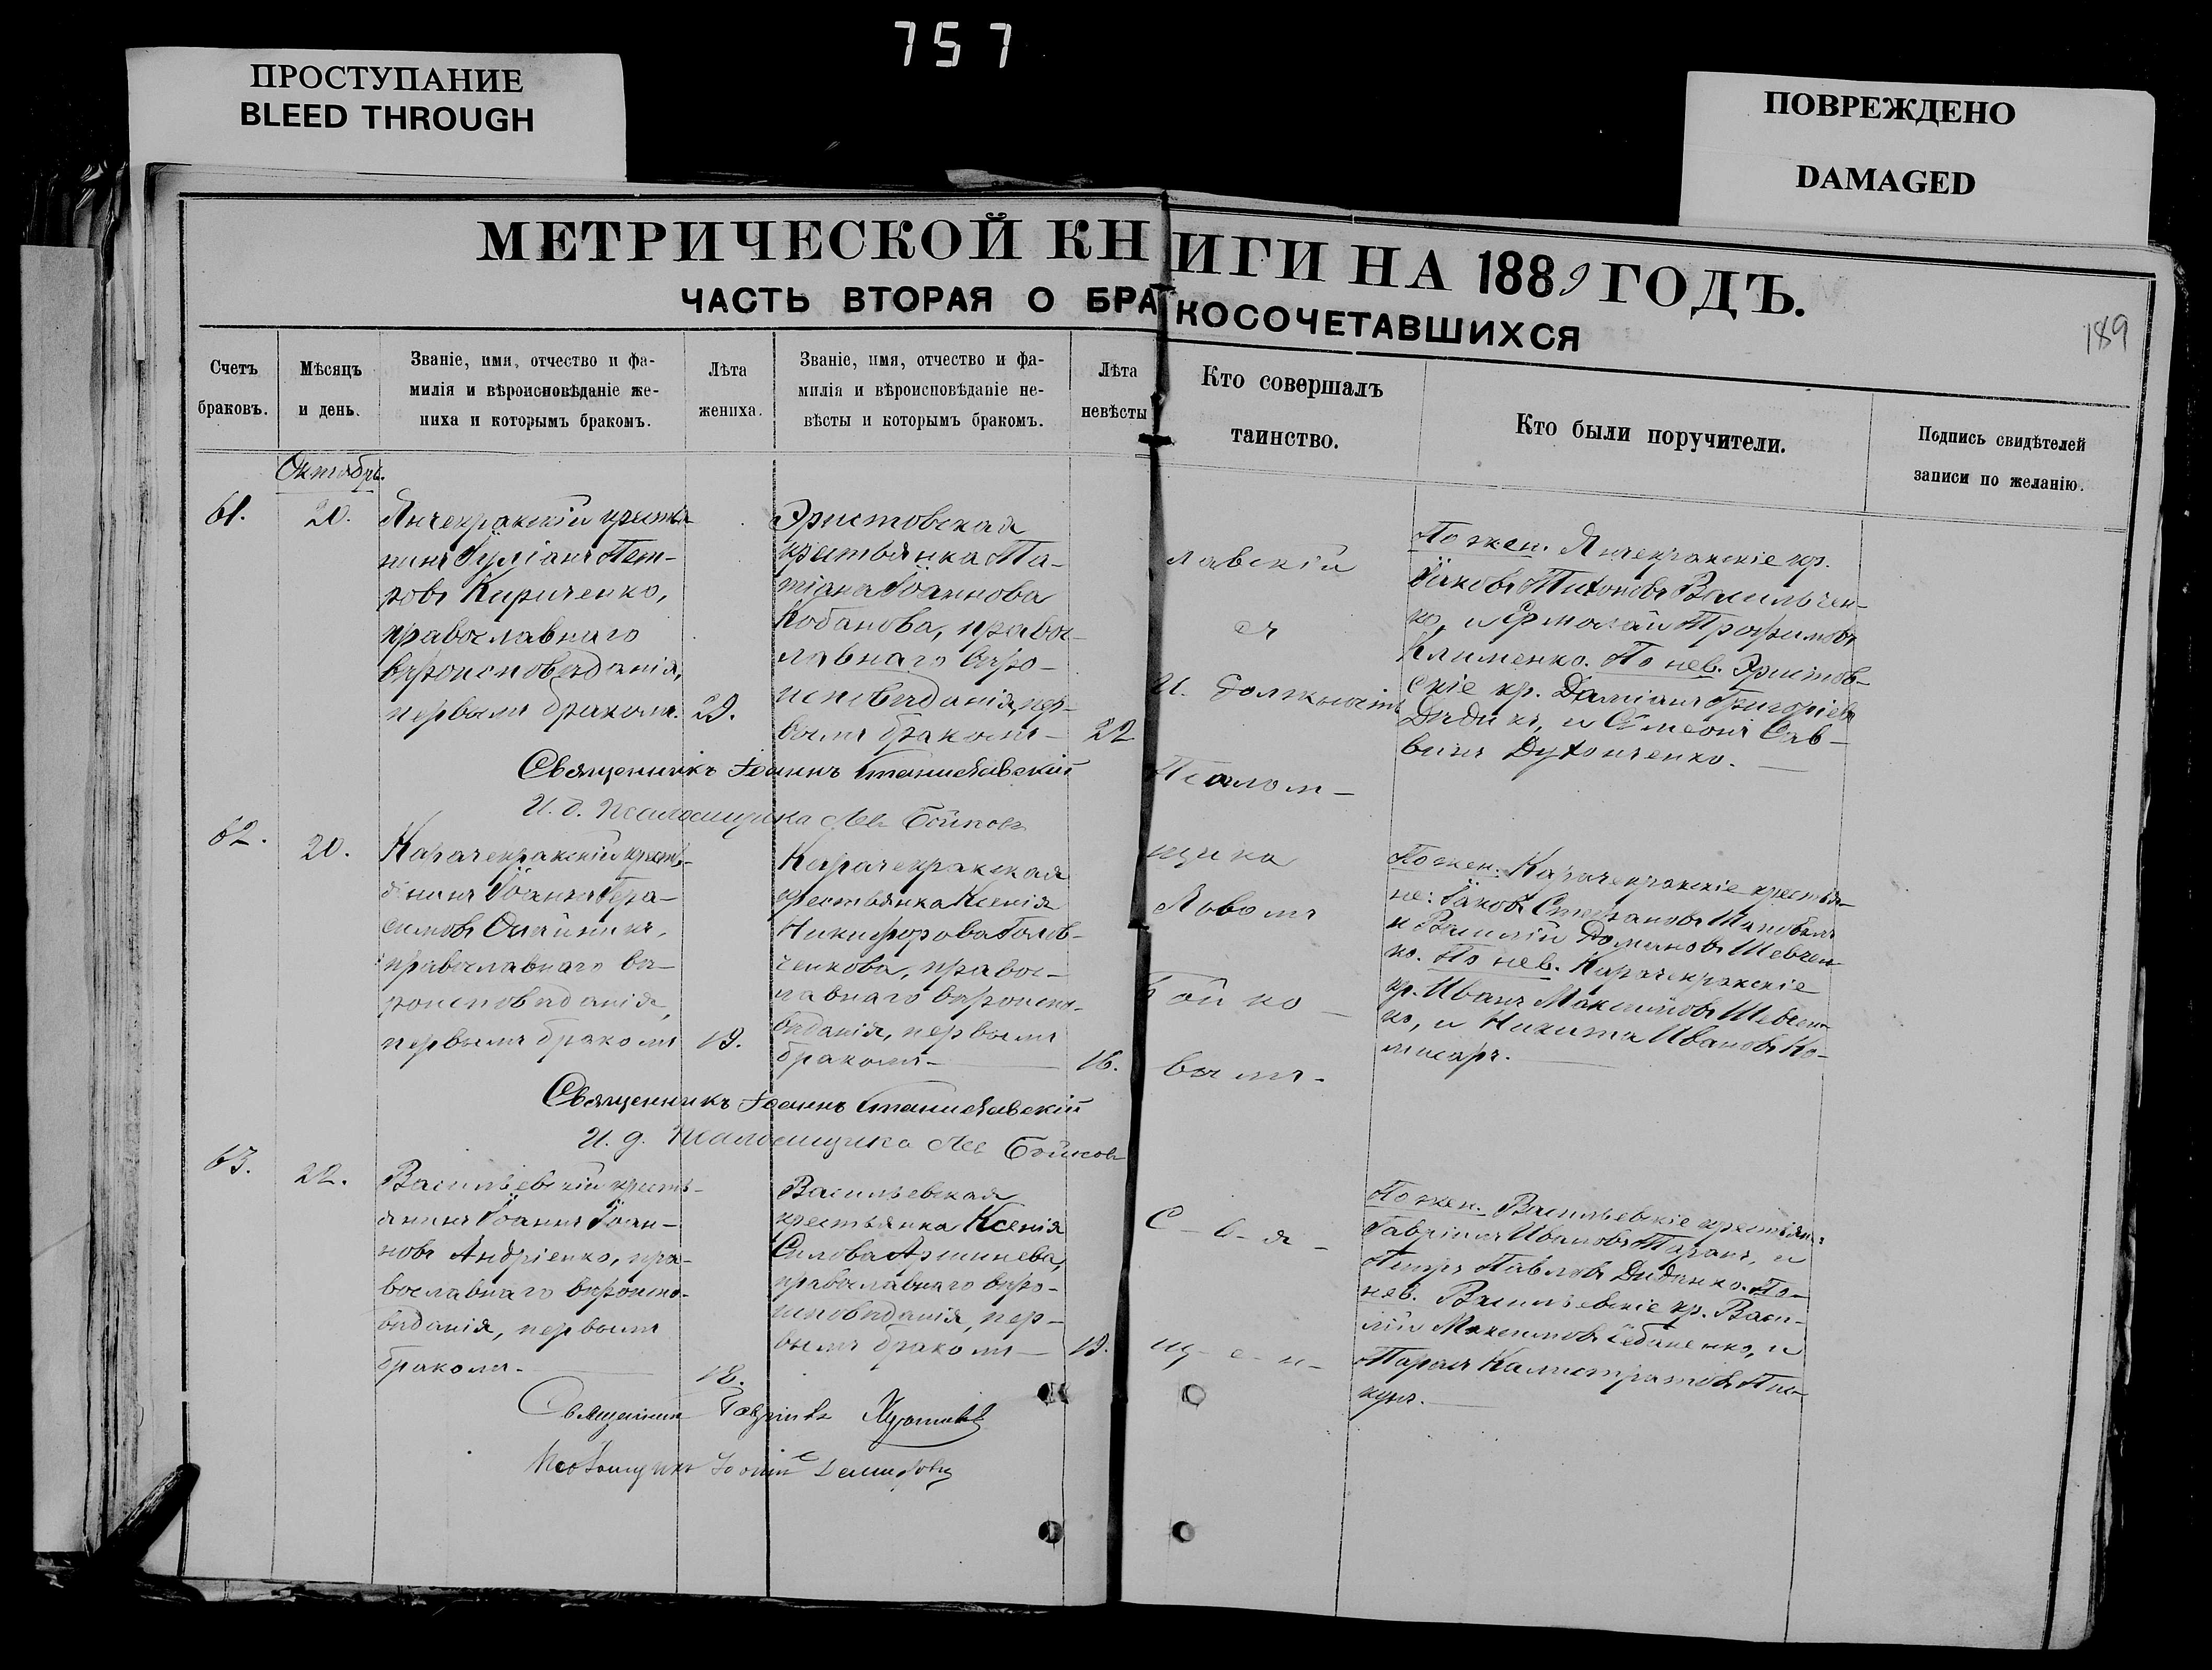 757
ПРОСТУПАНИЕ
BLEED THROUGH
ПОВРЕЖДЕНО
DAMAGED
МЕТРИЧЕСКОЙ КНИГИ НА 1889 ГОДЪ.
ЧАСТЬ ВТОРАЯ О БРАКОСОЧЕТАВШИХСЯ
189
Счетъ
браковъ.
Мѣсяцъ
и день.
Званіе, имя, отчество и фа-
милія и вѣроисповѣданіе же-
ниха и которымъ бракомъ.
Лѣта
жениха.
Званіе, имя, отчество и фа-
милія и вѣроисповѣданіе не-
вѣсты и которымъ бракомъ.
Лѣта
невѣсты
Кто совершалъ
таинство.
Кто были поручители.
Подпись свидѣтелей
записи по желанію.
Октобрь.
61.
20.
Янчекракскій крестья
нинъ Іуліанъ Пет-
ровъ Кириченко,
православнаго
вѣроисповѣданія,
первымъ бракомъ.
23.
Эристовская
крестьянка Та-
тіана Іоаннова
Кобанова, правос-
лавнаго вѣро-
исповѣданія, пер-
вымъ бракомъ
22
лавскій
съ
И. должность
Псалом-
щика
Львомъ
Бойко-
вымъ.
По жен. Янчекракскіе кр.
Іаковъ Тихоновъ Васильчен-
ко, и Ермолай Трофимовъ
Клименко. По нев. Эристов-
скіе кр. Даміанъ Григоріевъ
Дѣдикъ, и Сѵмеонъ Сав-
винъ Духонченко.
Священникъ Іоаннъ Станиславскій
И. д. Псаломщика Левъ Бойковъ
62.
20.
Карачекракскій кресть-
янинъ Іоаннъ Гера-
симовъ Олейникъ,
православнаго вѣ-
роисповѣданія,
первымъ бракомъ
19.
Карачекракская
крестьянка Ксенія
Никифорова Голов-
ченкова, правос-
лавнаго вѣроиспо-
вѣданія, первымъ
бракомъ
16.
По жен. Карачекракскіе крестья-
не: Іаковъ Стефановъ Шаповалъ
и Василій Домановъ Шевчен-
ко. По нев. Карачекракскіе
кр. Иванъ Максимовъ Шевчен-
ко, и Никита Ивановъ Ко-
мисаръ.
Священникъ Іоаннъ Станиславскій
И. д. Псаломщика Левъ Бойковъ
63.
22.
Васильевскій кресть-
янинъ Іоаннъ Іоан-
новъ Андріенко, пра-
вославнаго вѣроиспо-
вѣданія, первымъ
бракомъ.
18.
Васильевская
крестьянка Ксенія
Силова Аршинева,
православнаго вѣро-
исповѣданія, пер-
вымъ бракомъ
19.
С-в-я-
щ-е-н-
По жен. Васильевскіе крестьяне:
Гавріилъ Ивановъ Таранъ, и
Петръ Павловъ Диденко. По
нев. Васильевскіе кр. Васи-
лій Максимовъ
Тарасъ Калистратовъ
Священникъ Гавріилъ
Псаломщикъ